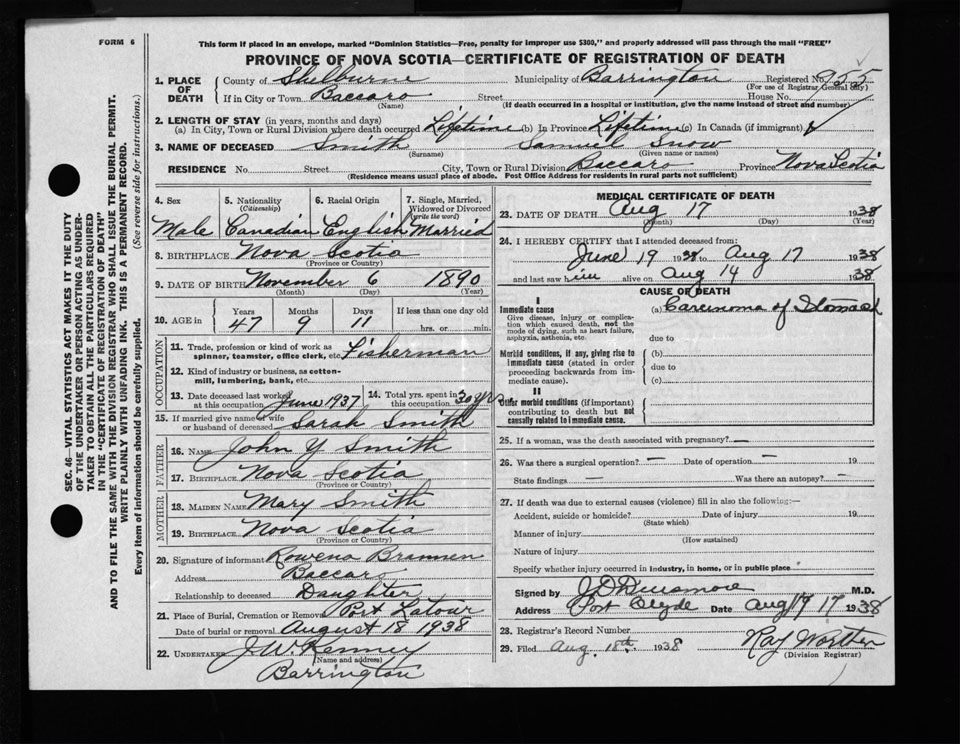 FORM 6
This form if placed in an envelope, marked "Dominion Statistics—Free, penalty for improper use $300," and properly addressed will pass through the mail "FREE"
PROVINCE OF NOVA SCOTIA—CERTIFICATE OF REGISTRATION OF DEATH
SEC. 46—VITAL STATISTICS ACT MAKES IT THE DUTY
OF THE UNDERTAKER OR PERSON ACTING AS UNDER-
TAKER TO OBTAIN ALL THE PARTICULARS REQUIRED
IN THE "CERTIFICATE OF REGISTRATION OF DEATH"
AND TO FILE THE SAME WITH THE DIVISION REGISTRAR WHO SHALL ISSUE THE BURIAL PERMIT.
WRITE PLAINLY WITH UNFADING INK. THIS IS A PERMANENT RECORD.
Every item of information should be carefully supplied. (See reverse side for instructions.)
1. PLACE OF DEATH County of Shelburne Municipality of Barrington Registered No. 955
(For use of Registrar General only)
If in City or Town Baccaro Street House No.
(Name) (If death occurred in a hospital or institution, give the name instead of street and number)
2. LENGTH OF STAY (in years, months and days)
(a) In City, Town or Rural Division where death occurred Lifetime (b) In Province Lifetime (c) In Canada (if immigrant)
3. NAME OF DECEASED Smith Samuel Snow
(Surname) (Given name or names)
RESIDENCE No. Street City, Town or Rural Division Baccaro Province Nova Scotia
(Residence means usual place of abode. Post Office Address for residents in rural parts not sufficient)
4. Sex 5. Nationality (Citizenship) 6. Racial Origin 7. Single, Married, Widowed or Divorced (write the word)
Male Canadian English Married
8. BIRTHPLACE Nova Scotia
(Province or Country)
9. DATE OF BIRTH November 6 1890
(Month) (Day) (Year)
10. AGE in Years Months Days If less than one day old
47 9 11 hrs. or min.
OCCUPATION
11. Trade, profession or kind of work as spinner, teamster, office clerk, etc. Fisherman
12. Kind of industry or business, as cotton-mill, lumbering, bank, etc.
13. Date deceased last worked at this occupation June 1937 14. Total yrs. spent in this occupation 30 yrs
15. If married give name of wife or husband of deceased Sarah Smith
FATHER
16. NAME John Y Smith
17. BIRTHPLACE Nova Scotia
(Province or Country)
MOTHER
18. MAIDEN NAME Mary Smith
19. BIRTHPLACE Nova Scotia
(Province or Country)
20. Signature of informant Rowena Brannen
Address Baccaro
Relationship to deceased Daughter
21. Place of Burial, Cremation or Removal Port Latour
Date of burial or removal August 18 1938
22. UNDERTAKER J. W. Kenney
(Name and address)
Barrington
MEDICAL CERTIFICATE OF DEATH
23. DATE OF DEATH Aug 17 1938
(Month) (Day) (Year)
24. I HEREBY CERTIFY that I attended deceased from:
June 19 1938 to Aug 17 1938
and last saw him alive on Aug 14 1938
CAUSE OF DEATH
I
Immediate cause (a) Carcinoma of Stomach
Give disease, injury or complication which caused death, not the mode of dying, such as heart failure, asphyxia, asthenia, etc.
due to
Morbid conditions, if any, giving rise to immediate cause (stated in order proceeding backwards from immediate cause).
(b)
due to
(c)
II
Other morbid conditions (if important) contributing to death but not causally related to immediate cause.
25. If a woman, was the death associated with pregnancy? —
26. Was there a surgical operation? — Date of operation — 19
State findings — Was there an autopsy? —
27. If death was due to external causes (violence) fill in also the following:—
Accident, suicide or homicide? Date of injury 19
(State which)
Manner of injury
(How sustained)
Nature of injury
Specify whether injury occurred in industry, in home, or in public place
Signed by M.D.
Address Port Clyde Date Aug 17 1938
28. Registrar's Record Number
29. Filed Aug. 18th. 1938 Ray
(Division Registrar)